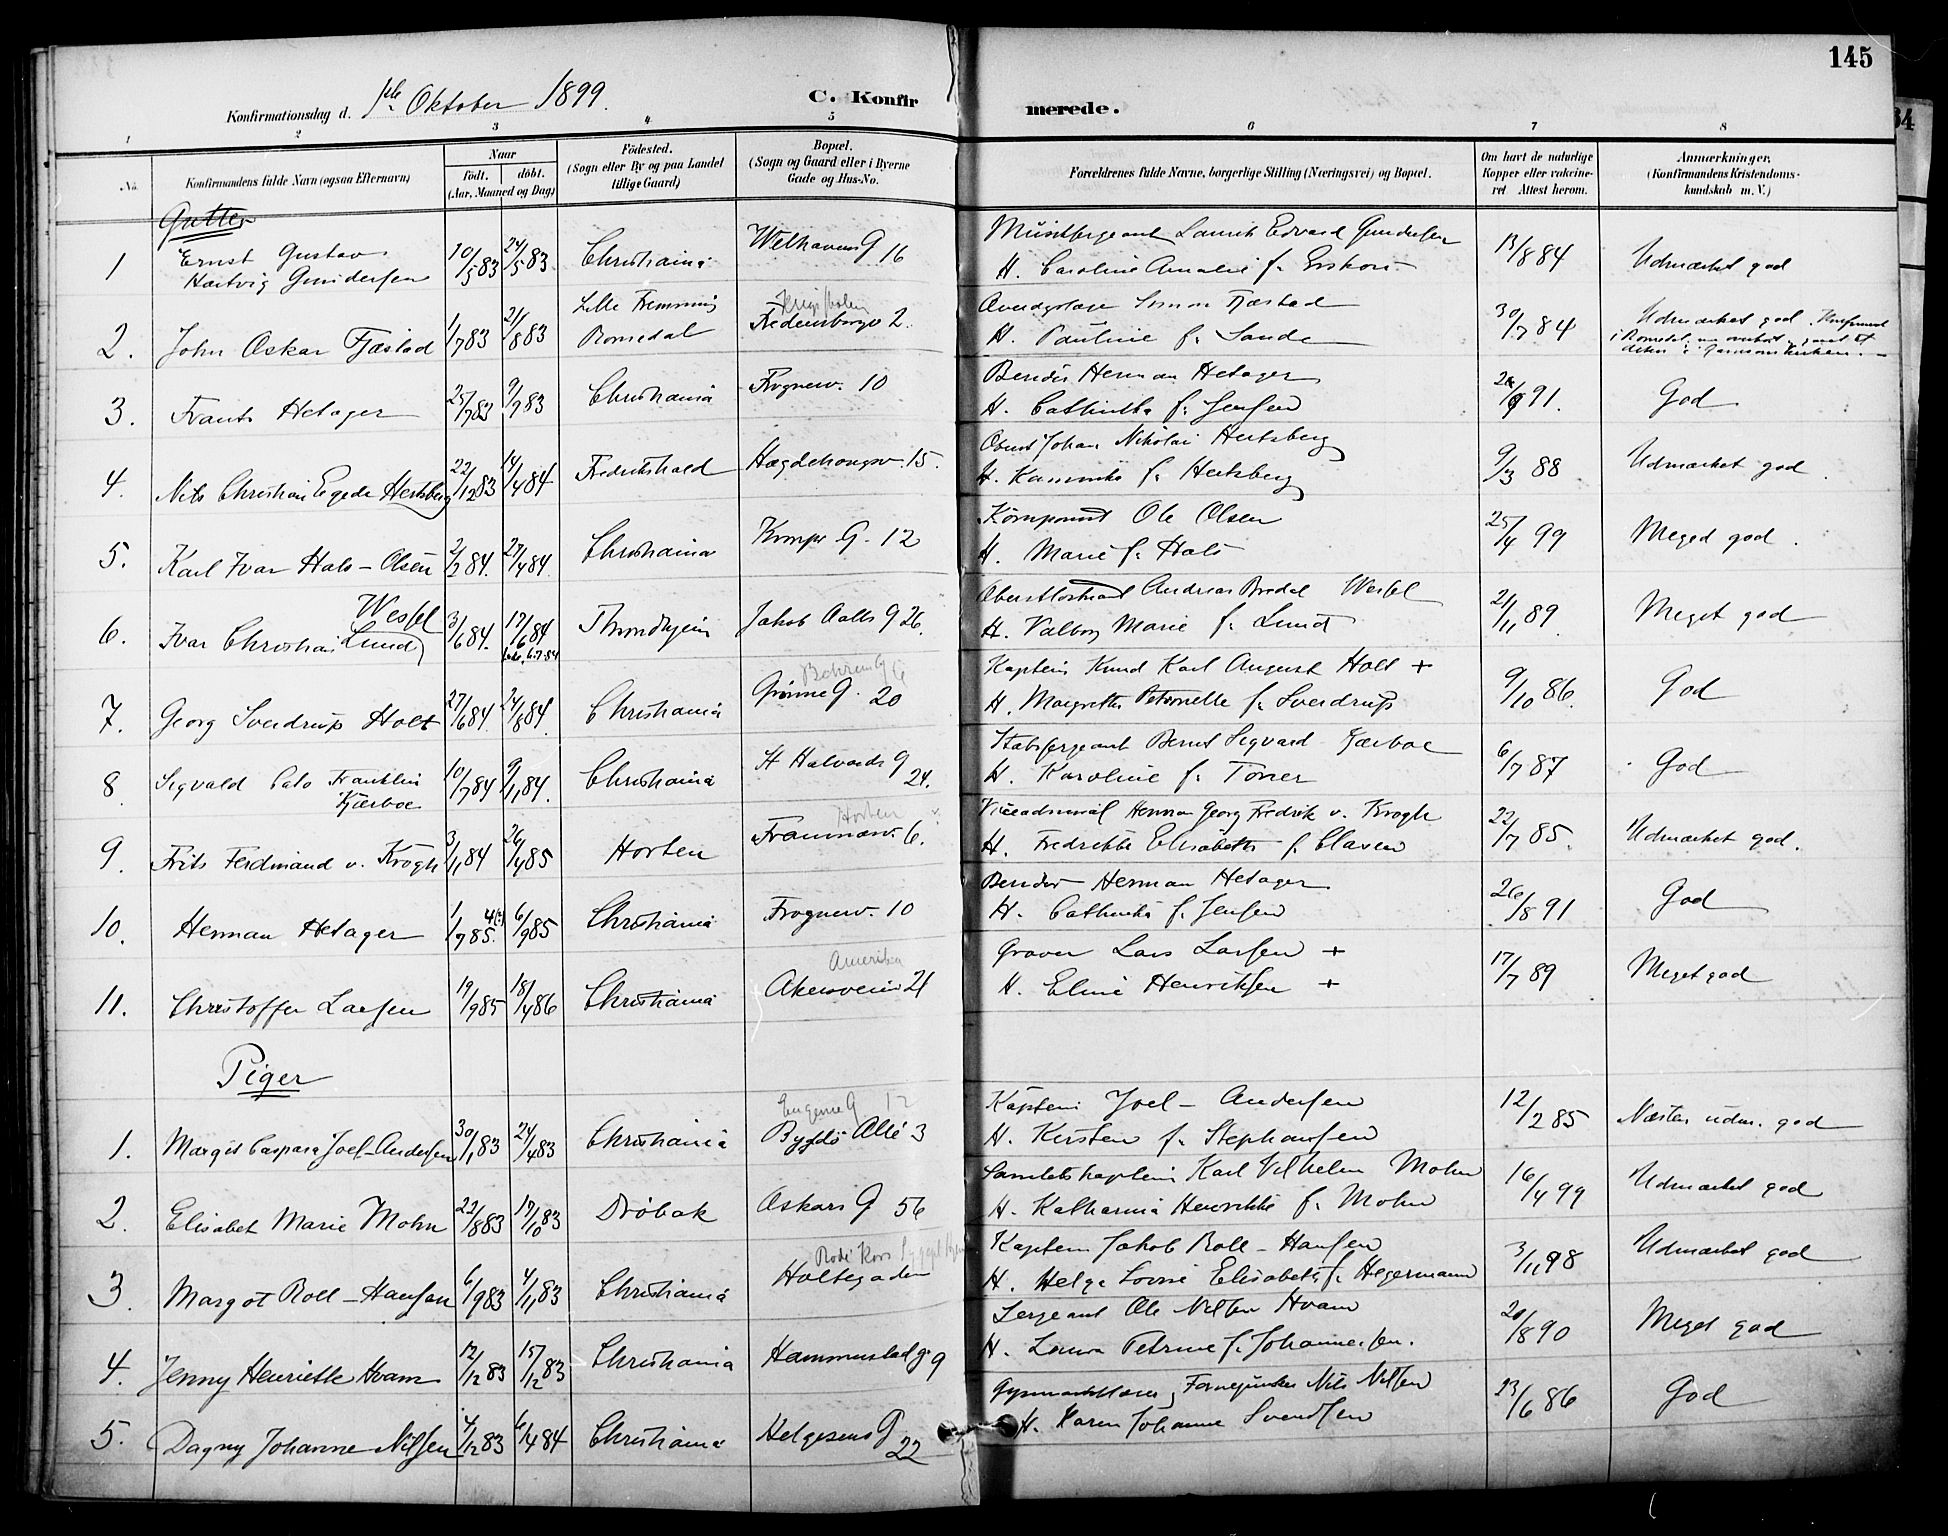 145
Konfirmationsdag d. 1ste Oktober 1899.
C. Konfirmerede.
1 2 3 4 5 6 7 8
No.
Konfirmandens fulde Navn (ogsaa Efternavn)
Naar
födt. döbt.
(Aar, Maaned og Dag)
Födested.
(Sogn eller By og paa Landet
tillige Gaard)
Bopæl.
(Sogn og Gaard eller i Byerne
Gade og Hus-No.
Forældrenes fulde Navne, borgerlige Stilling (Næringsvei) og Bopæl.
Om havt de naturlige
Kopper eller vakcine-
ret Attest herom.
Anmærkninger,
(Konfirmandens Kristendoms-
kundskab m. V.)
Gutter
1 Ernst Gustav 10/5 83 24/5 83 Christiania Welhavens G 16 Edvard Gundersen 13/8 84 Udmærket god
Hartvig Gundersen H. Caroline Amalie f.
2. John Oskar Fjæstad 1/7 83 21/8 83 Lille Romedal Fredensborgv 2. Fjæstad 30/7 84 Udmærket god.
H. Pauline f. Sande
3. Frants Hetager 25/7 83 9/7 83 Christiania Frognerv. 10 Herman Hetager 91. God
H. Cathinka f. Jensen
4. Nils Christian Egede Hertzberg 22/12 83 14/4 84 Fredrikshald Hægdehougsv. 15. Oberst Johan Nikolai Hertzberg 9/3 88 Udmærket god
H. f. Hertzberg
5. Karl Ivar Hals-Olsen 2/2 84. 27/4 84. Christiania G. 12 Komponist Ole Olsen 25/4 99 Meged god.
H. Marie f. Hals
6. Ivar Christian Lund Wessel 3/6 84. 17/6 84 Throndhjem Jakob Aalls G 26. Andreas Bredal Wessel 21/11 89. Meget god
H. Valborg Marie f. Lund
7. Georg Sverdrup Holt 27/6 84. 24/8 84. Christiania Grønne G. 20 Kaptein Knud Karl August Holt + 9/10 86. God
H. Margrethe Petronelle f. Sverdrup
8 Sigvald Cato Franklin 10/7 84 9/11 84. Christiania St Halvards G 24. Stabssergeant Bernt Sigvard Kjærboe 6/7 87 God
Kjærboe H. Karoline f.
9. Frits Ferdinand v. Krogh 3/11 84 26/4 85 Horten Horten Framnæsv. 6. Viceadmiral Herman Georg Fredrik v. Krogh 22/7 85. Udmærket god.
H. Fredrikke Elisabeth f. Clasen
10. Herman Hetager 1/7 85. 4(?) 6/9 85 Christiania Frognerv. 10 Herman Hetager 26/8 91 God
H. Cathinka f. Jensen
11. Christoffer Larsen 19/9 85 18/4 86 Christiania Amerika Akersveien 21 Graver Lars Larsen + 17/7 89 Meget god
H. Eline Henriksen +
Piger
1. Margit Caspara Joel-Andersen 30/1 83 24/4 83 Christiania Eugenie G 12 Bygdö Allé 3 Kaptein Joel-Andersen 12/2 85 Næsten udm. god
H. Kirsten f. Stephansen
2. Elisabet Marie Mohn 22/8 83 17/10 83 Dröbak Oskars G 56 Karl Vilhelm Mohn 16/4 99 Udmærket god
H. Katharina Henrikke f. Mohn
3. Margot Roll-Hansen 6/9 83 4/11 83 Christiania Holtegaden Kaptein Jakob Roll-Hansen 3/11 98 Udmærket god
H. Helga Elisabeth f. Hegermann
4. Jenny Henriette Hvam 12/12 83 15/12 83 Christiania Hammerstad g 9 Sergeant Ole Nilsen Hvam 20/8 90 Meget god
H. Laura Petrine f. Johannessen.
5. Dagny Johanne Nilsen 4/12 83 6/4 84 Christiania Helgesens G 22 Nils Nilsen 23/6 86 God
H. Karen Johanne Svendsen